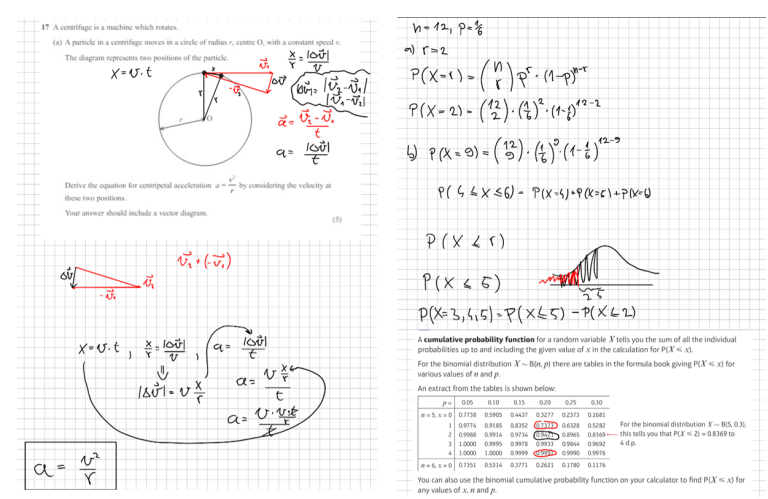 17 A centrifuge is a machine which rotates.
(a) A particle in a centrifuge moves in a circle of radius r, centre O, with a constant speed v.
The diagram represents two positions of the particle.
x = v · t
x
r
r
r
O
v⃗₁
-v⃗₂
Δv⃗
x/r = |Δv⃗|/v
|Δv⃗| = |v⃗₂ - v⃗₁|
|v⃗₁ - v⃗₂|
a⃗ = (v⃗₂ - v⃗₁)/t
a = |Δv⃗|/t
Derive the equation for centripetal acceleration a = v²/r by considering the velocity at
these two positions.
Your answer should include a vector diagram.
(5)
v⃗₂ + (-v⃗₁)
Δv⃗
-v⃗₁
v⃗₂
x = v · t , x/r = |Δv⃗|/v , a = |Δv⃗|/t
⇓
|Δv⃗| = v x/r
a = v x/r / t
a = v · v·t/r / t
a = v²/r
n = 12, p = 1/6
a) r = 2
P(X = r) = (n r) pʳ · (1-p)ⁿ⁻ʳ
P(X = 2) = (12 2) · (1/6)² · (1-1/6)¹²⁻²
b) P(X = 9) = (12 9) · (1/6)⁹ · (1-1/6)¹²⁻⁹
P(4 ≤ X ≤ 6) = P(X=4) + P(X=5) + P(X=6)
P(X ≤ r)
P(X ≤ 5)
2 5
P(X = 3,4,5) = P(X ≤ 5) - P(X ≤ 2)
A cumulative probability function for a random variable X tells you the sum of all the individual
probabilities up to and including the given value of x in the calculation for P(X ≤ x).
For the binomial distribution X ~ B(n, p) there are tables in the formula book giving P(X ≤ x) for
various values of n and p.
An extract from the tables is shown below:
p = 0.05 0.10 0.15 0.20 0.25 0.30
n = 5, x = 0 0.7738 0.5905 0.4437 0.3277 0.2373 0.1681
1 0.9774 0.9185 0.8352 0.7373 0.6328 0.5282
2 0.9988 0.9914 0.9734 0.9421 0.8965 0.8369
3 1.0000 0.9995 0.9978 0.9933 0.9844 0.9692
4 1.0000 1.0000 0.9999 0.9997 0.9990 0.9976
n = 6, x = 0 0.7351 0.5314 0.3771 0.2621 0.1780 0.1176
For the binomial distribution X ~ B(5, 0.3),
this tells you that P(X ≤ 2) = 0.8369 to
4 d.p.
You can also use the binomial cumulative probability function on your calculator to find P(X ≤ x) for
any values of x, n and p.